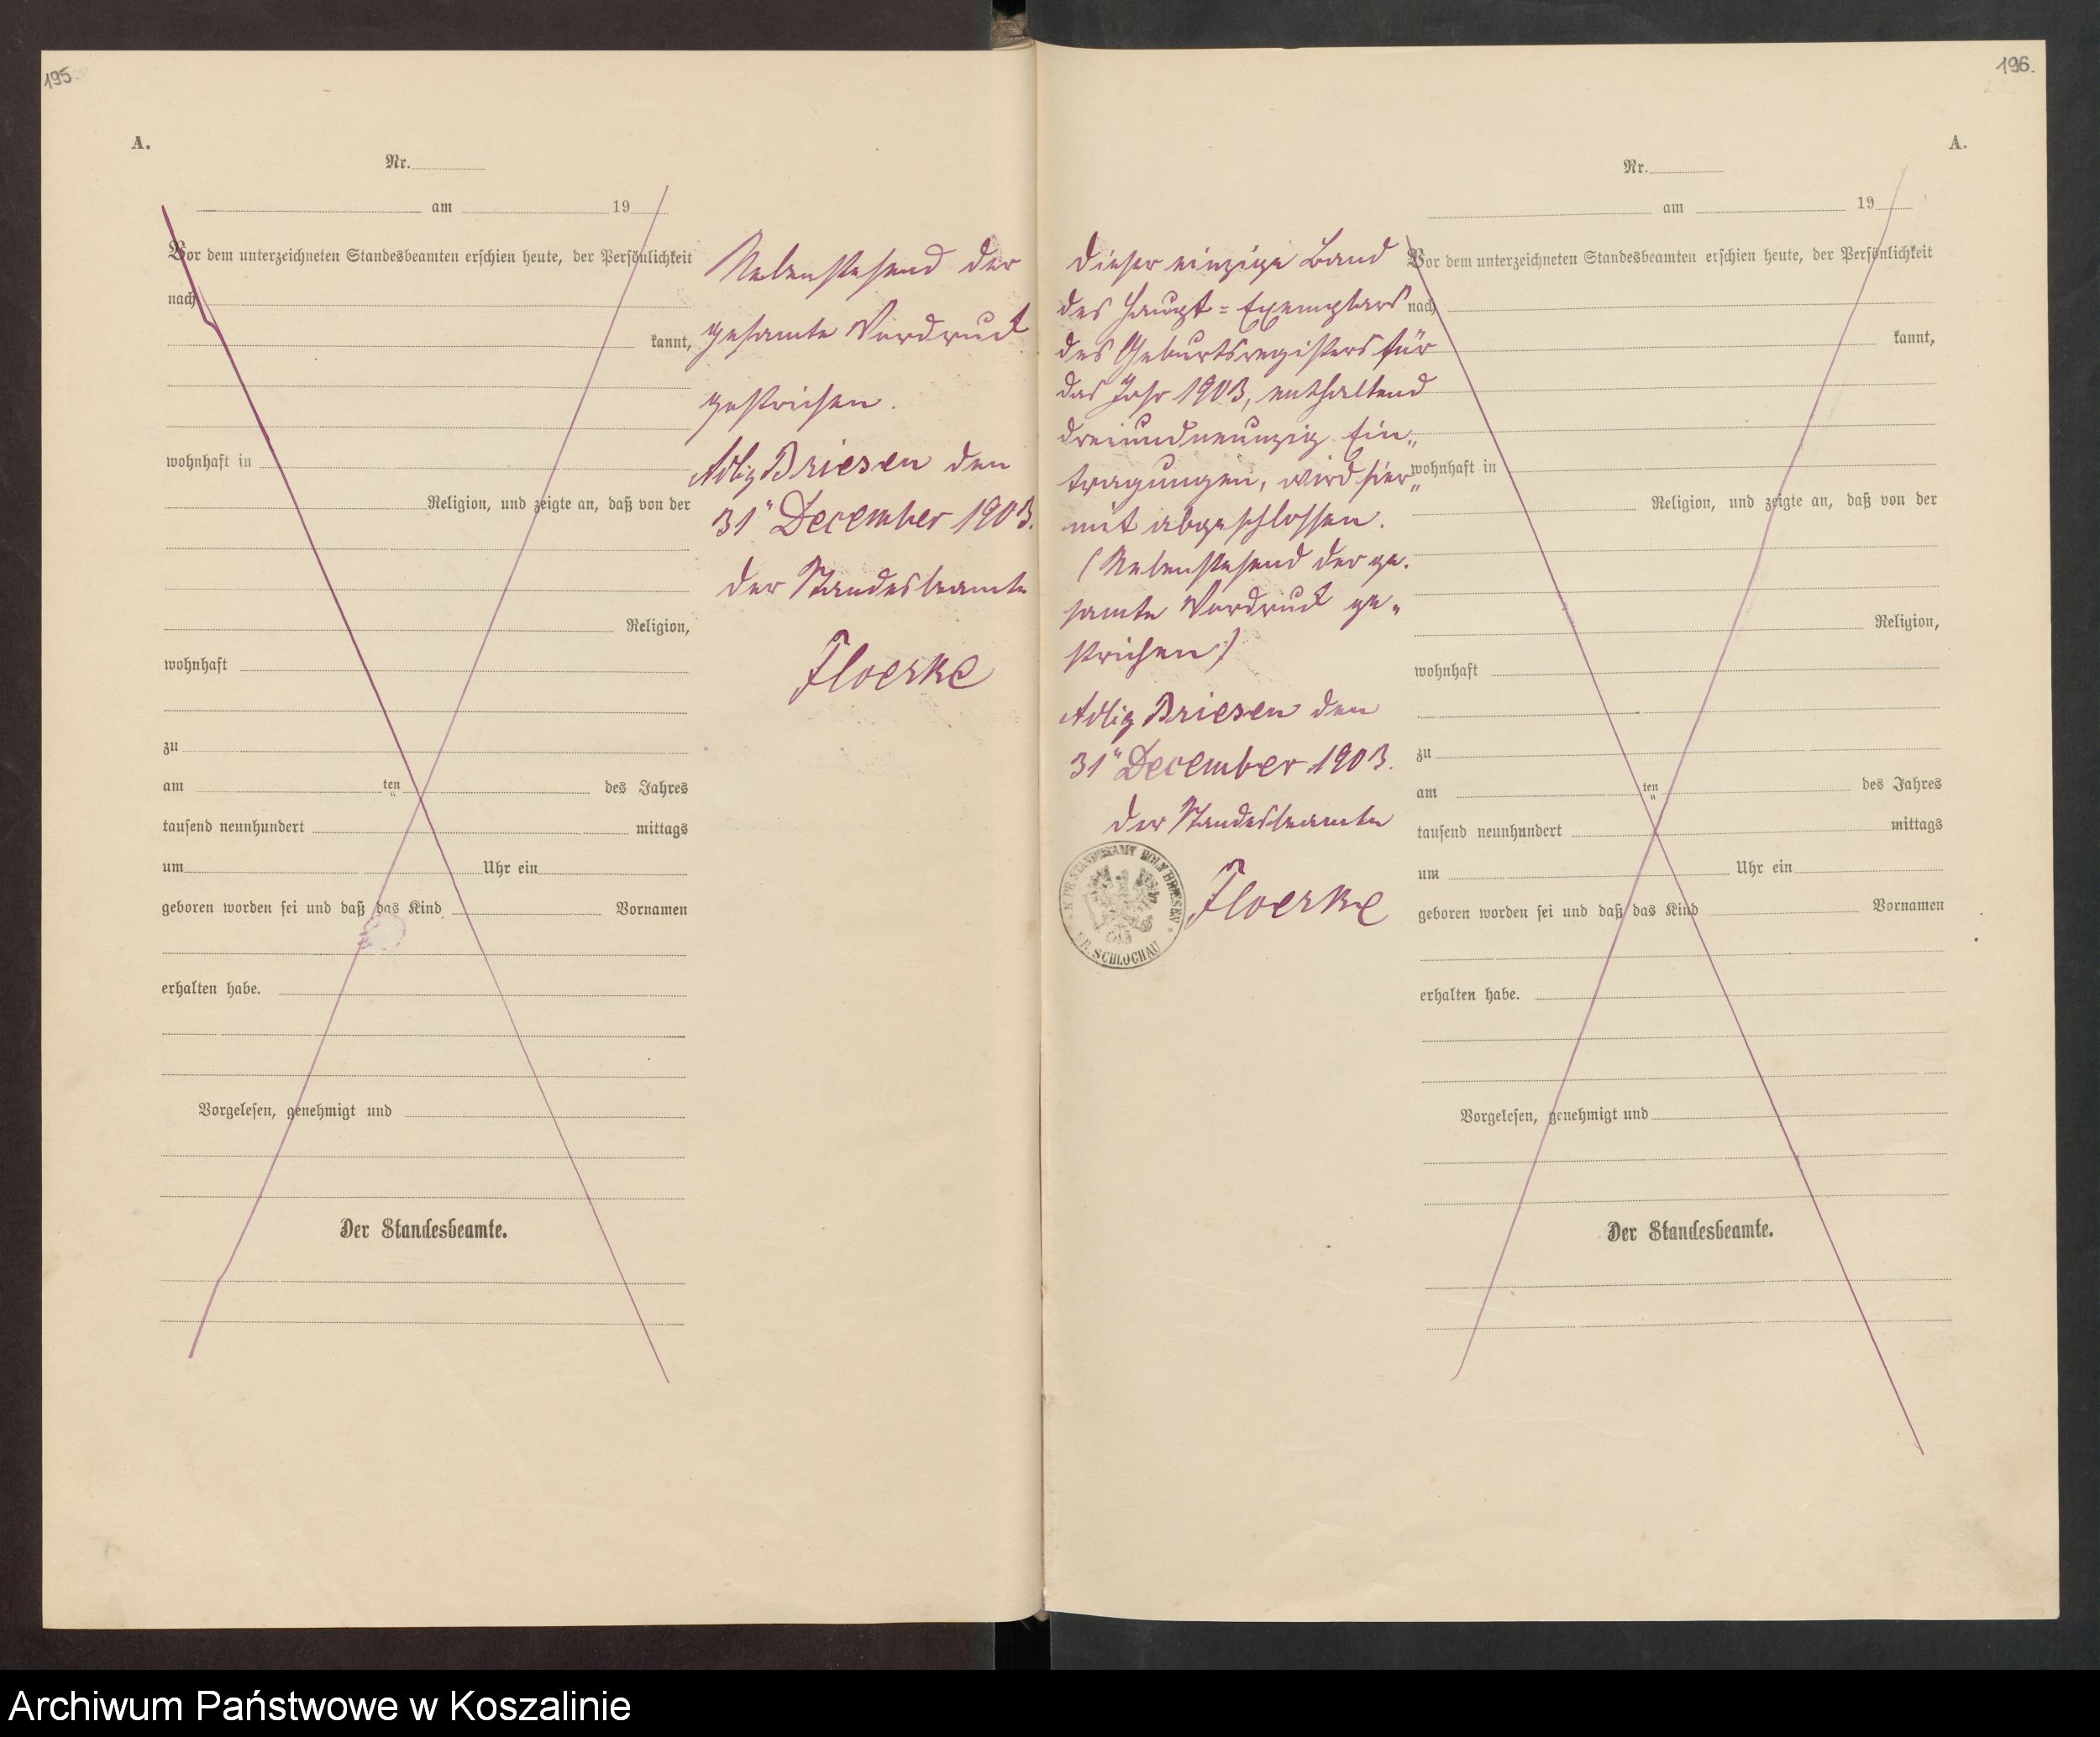 195
A.
Nr.
am 19
Vor dem unterzeichneten Standesbeamten erschien heute, der Persönlichkeit
nach
kannt,
wohnhaft in
Religion, und zeigte an, daß von der
Religion,
wohnhaft
zu
am ten des Jahres
tausend neunhundert mittags
um Uhr ein
geboren worden sei und daß das Kind Vornamen
erhalten habe.
Vorgelesen, genehmigt und
Der Standesbeamte.
Nebenstehend der
gesamte Vordruck
gestrichen.
Adlig Briesen den
31" December 1903.
Der Standesbeamte
Floerke
196.
A.
Dieser einzige Band
des Haupt=Exemplars
des Geburtsregisters für
das Jahr 1903, enthaltend
dreiundneunzig Ein„
tragungen, wird hier„
mit abgeschlossen.
(Nebenstehend der ge.
samte Vordruck ge„
strichen.)
Adlig Briesen den
31" December 1903.
Der Standesbeamte
Floerke
STANDESAMT BRIESEN
KR. SCHLOCHAU
Nr.
am 19
Vor dem unterzeichneten Standesbeamten erschien heute, der Persönlichkeit
nach
kannt,
wohnhaft in
Religion, und zeigte an, daß von der
Religion,
wohnhaft
zu
am ten des Jahres
tausend neunhundert mittags
um Uhr ein
geboren worden sei und daß das Kind Vornamen
erhalten habe.
Vorgelesen, genehmigt und
Der Standesbeamte.
Archiwum Państwowe w Koszalinie